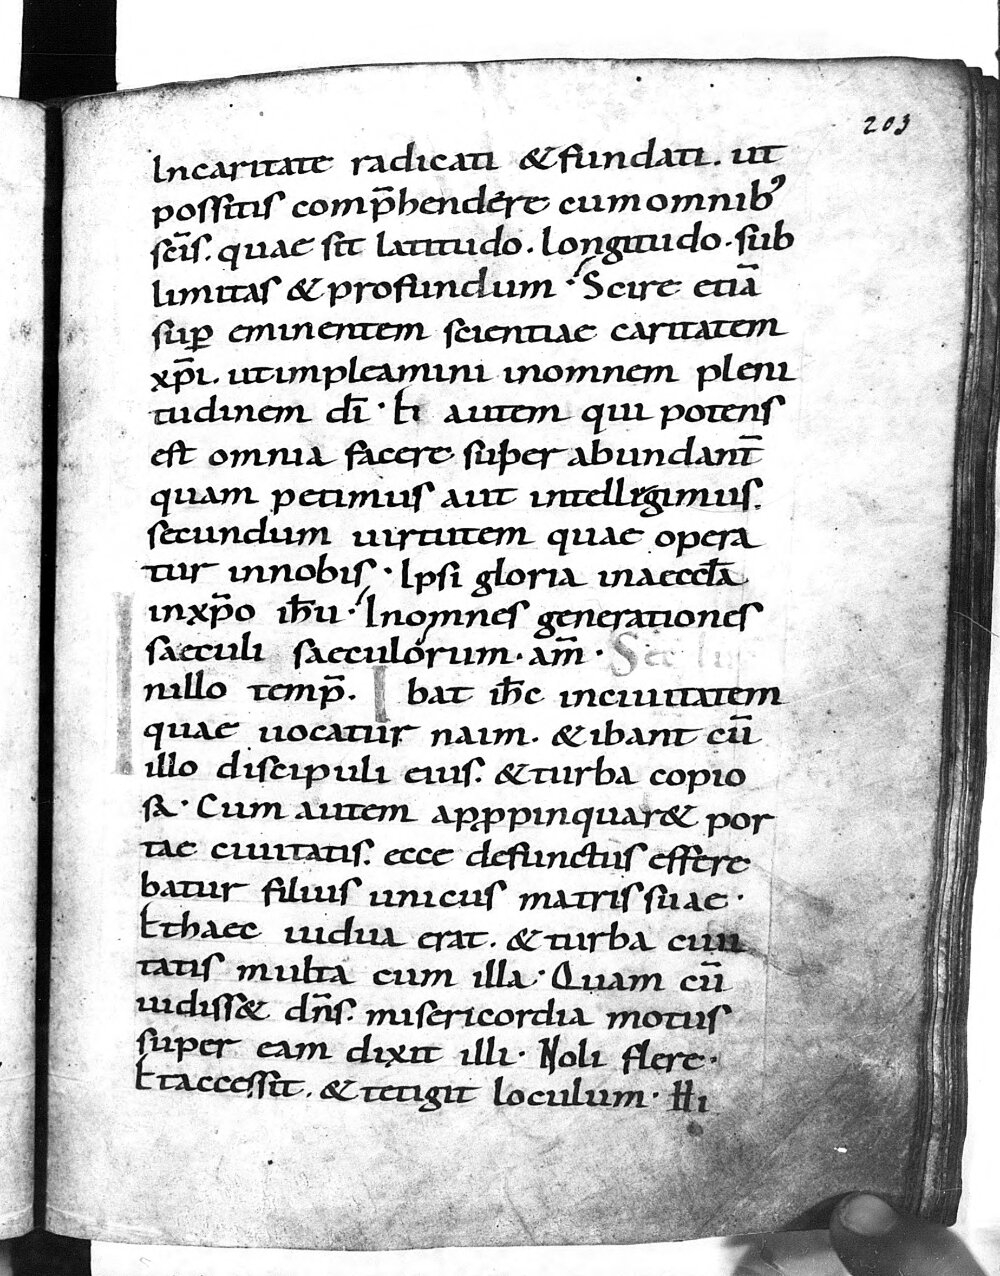 203
Incaritate radicati & fundati. ut
possitis comp̄hendere cumomnib᾽
sc̄is. quae sit latitudo. longitudo. sub
limitas & profundum · Scire etiā
sup̱ eminentem scientiae caritatem
xp̄i. utimpleamini inomnem pleni
tudinem dī · Ei autem qui potens
est omnia facere super abundant̄
quam petimus aut intellegimus.
secundum uirtutem quae opera
tur innobis · Ipsi gloria inaeccl̄a
inxp̄o ih̄u · Inomnes generationes
saeculi saeculorum · am̄ · Sec Lu
nillo temp̄. Ibat ih̄c inciuitatem
quae uocatur naim. & ibant cū
illo discipuli eius. & turba copio
sa · Cum autem aprppinquar& por
tae ciuitatis. ecce defunctus effere
batur filius unicus matris suae ·
Ethaec uidua erat. & turba ciui
tatis multa cum illa · Quam cū
uidiss& dn̄s. misericordia motus
super eam dixit illi · Noli flere ·
Etaccessit. & tetigit loculum · Hi